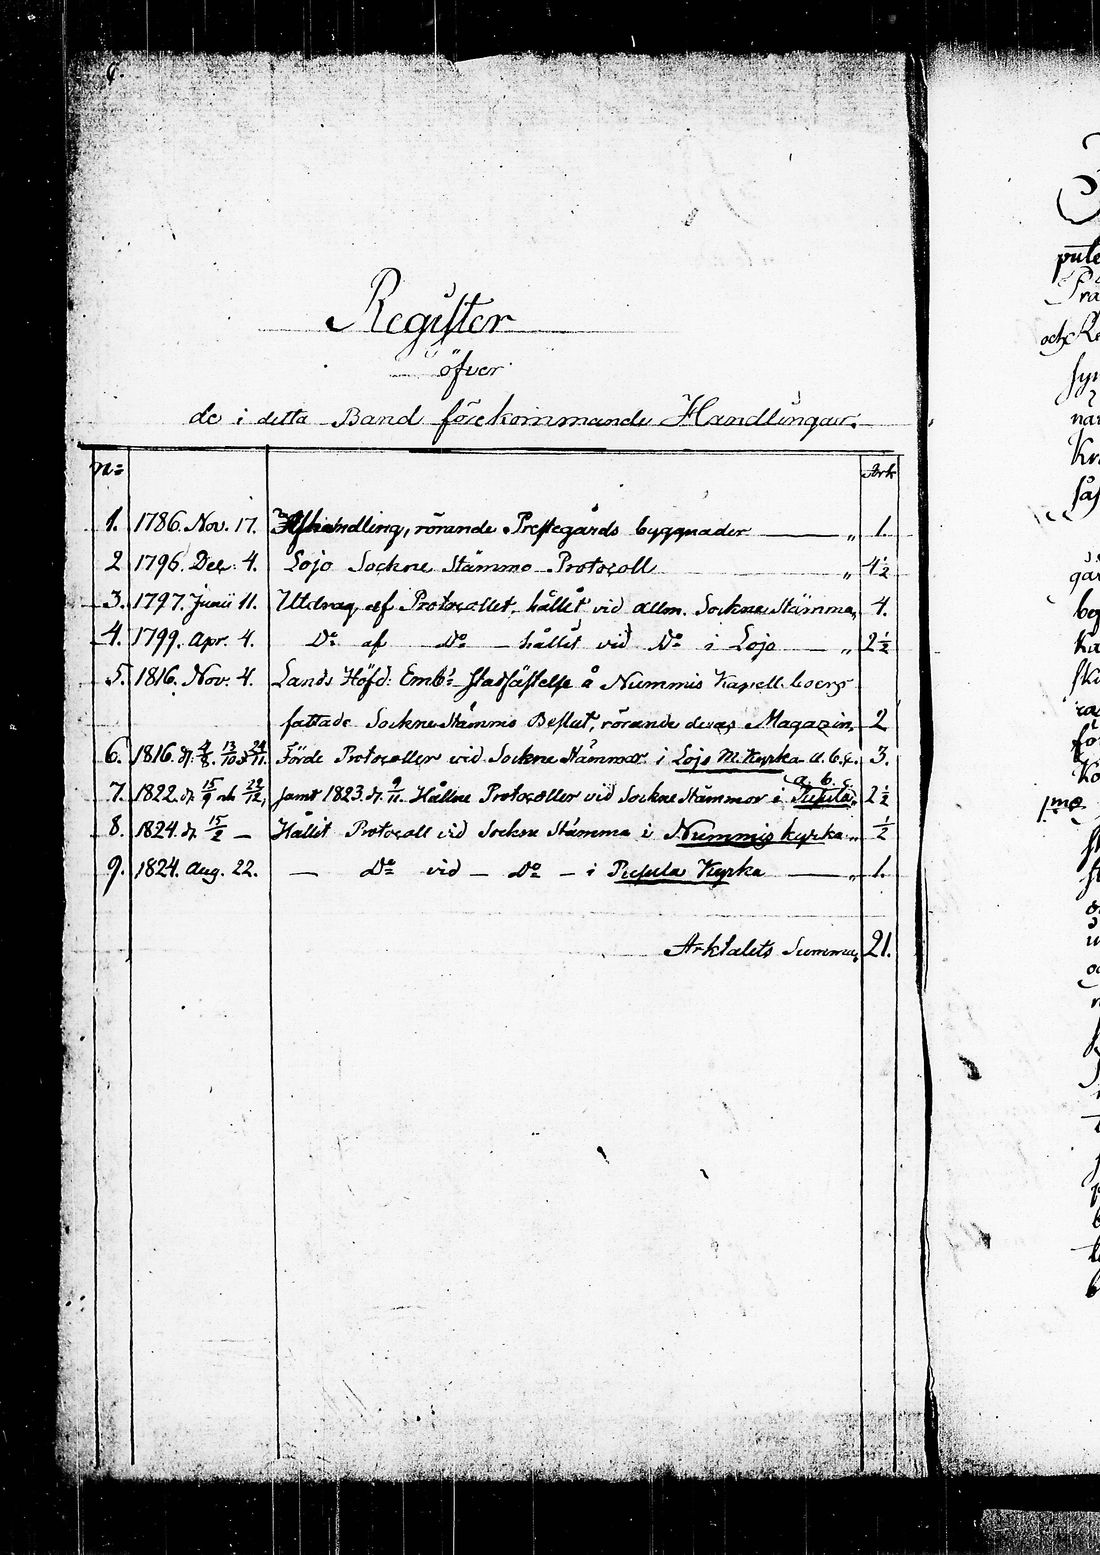 Register
öfver
de i detta Band förekommande Handlingar.
No Ark
1. 1786. Nov. 17. Afhandling, rörande Prestegårds byggnader — „ 1.
2 1796. Dec. 4. Lojo Sockne Stämmo Protocoll „ 4½
3. 1797. Junii 11. Utdrag af Protocollet, hållit vid allm. Sockne Stämma, 4.
4. 1799. Apr. 4. Do af Do hållit vid Do i Lojo — „ 2½
5. 1816. Nov. 4. Lands Höfd: Emb:s stadfästelse å Nummis Kapell boers
fattade Sockne Stämmo Beslut, rörande deras Magazin, 2
6. 1816. d. 4/8. 13/10 24/11. Förde Protocoller vid Sockne Stämmor i Lojo M. Kyrka a. b. c. 3.
a. b. c.
7. 1822. d. 15/9 och 29/12, samt 1823. d. 9/11. Hållne Protocoller vid Sockne Stämmor i Pusula, 2½
8. 1824. d. 15/2 — Hållit Protocoll vid Sockne Stämma i Nummis kyrka „ ½
9. 1824. Aug. 22. — Do vid — Do — i Pusula Kyrka — „ 1.
Arktalets Summa, 21.
och
1mo